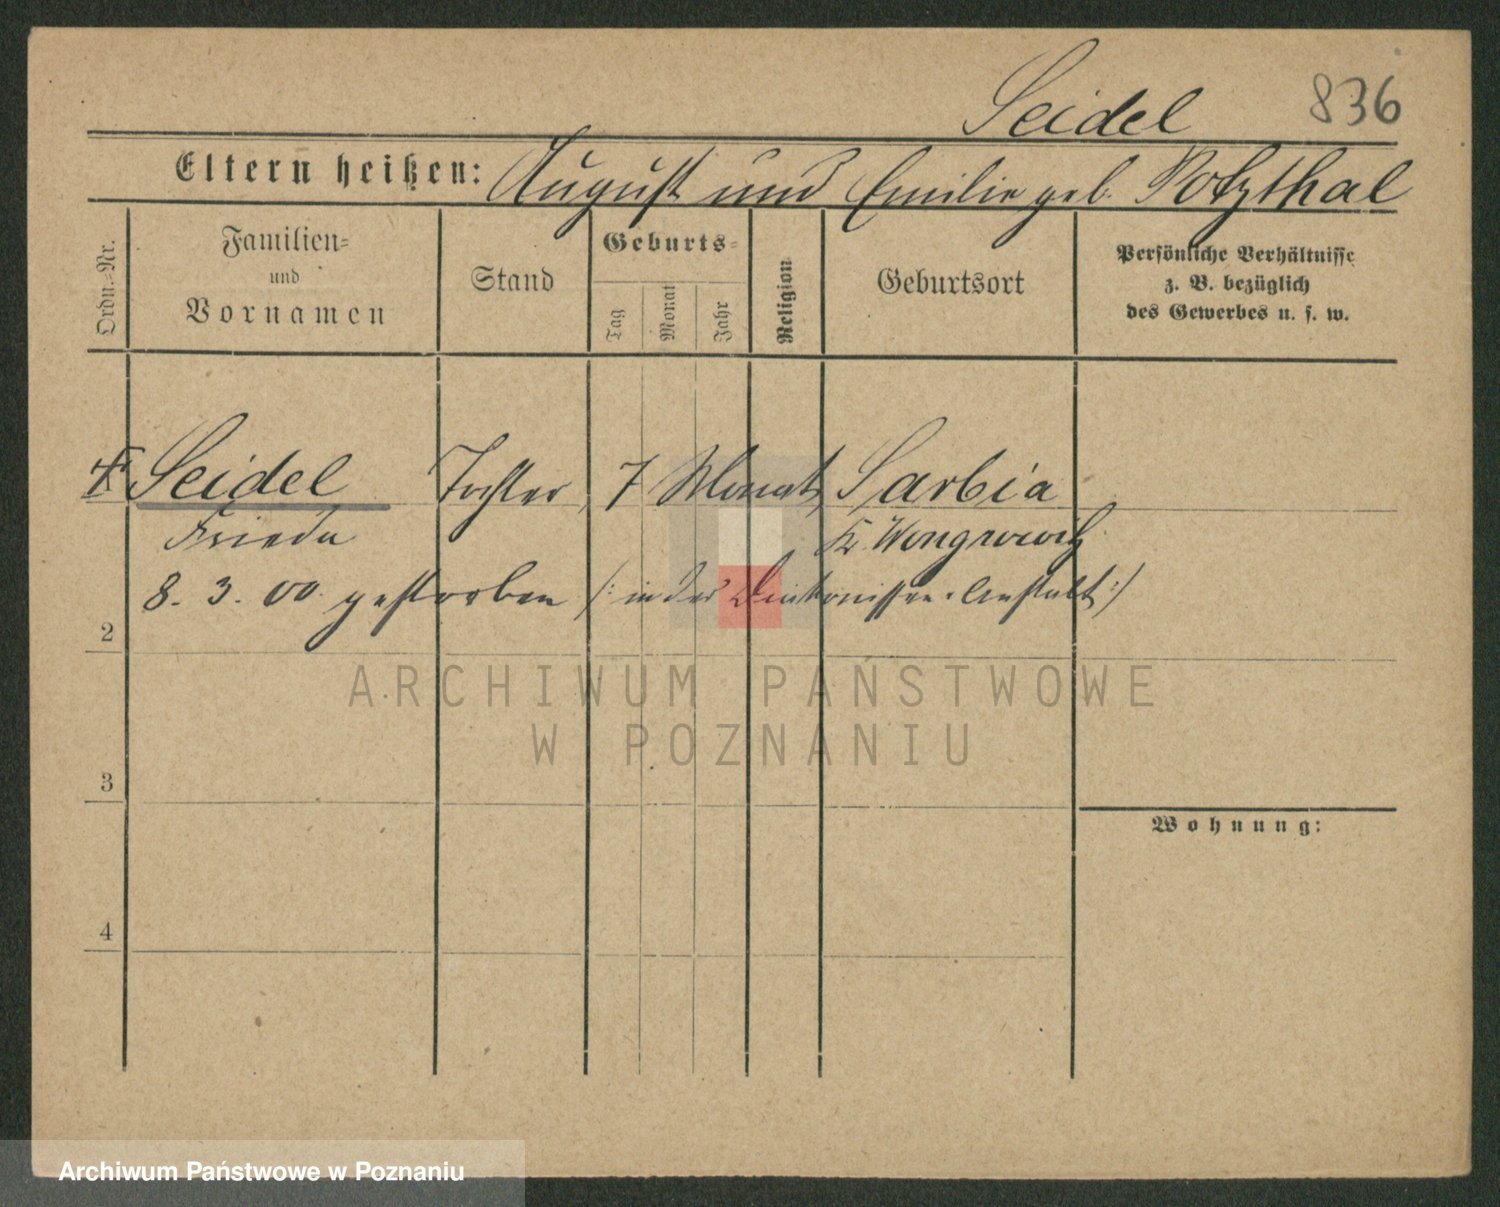 Seidel 836
Eltern heißen: August und Emilie geb. Potzthal
Ordn.-Nr.
Familien-
und
Vornamen
Stand
Geburts-
Tag
Monat
Jahr
Religion
Geburtsort
Persönliche Verhältnisse
z. B. bezüglich
des Gewerbes u. s. w.
Seidel Tochter 7 Monat Sarbia
Frieda Kr. Wongrowitz
8. 3. 00. gestorben /: in der Diakonissen-Anstalt :/
2
3
4
Wohnung:
ARCHIWUM PAŃSTWOWE
W POZNANIU
Archiwum Państwowe w Poznaniu